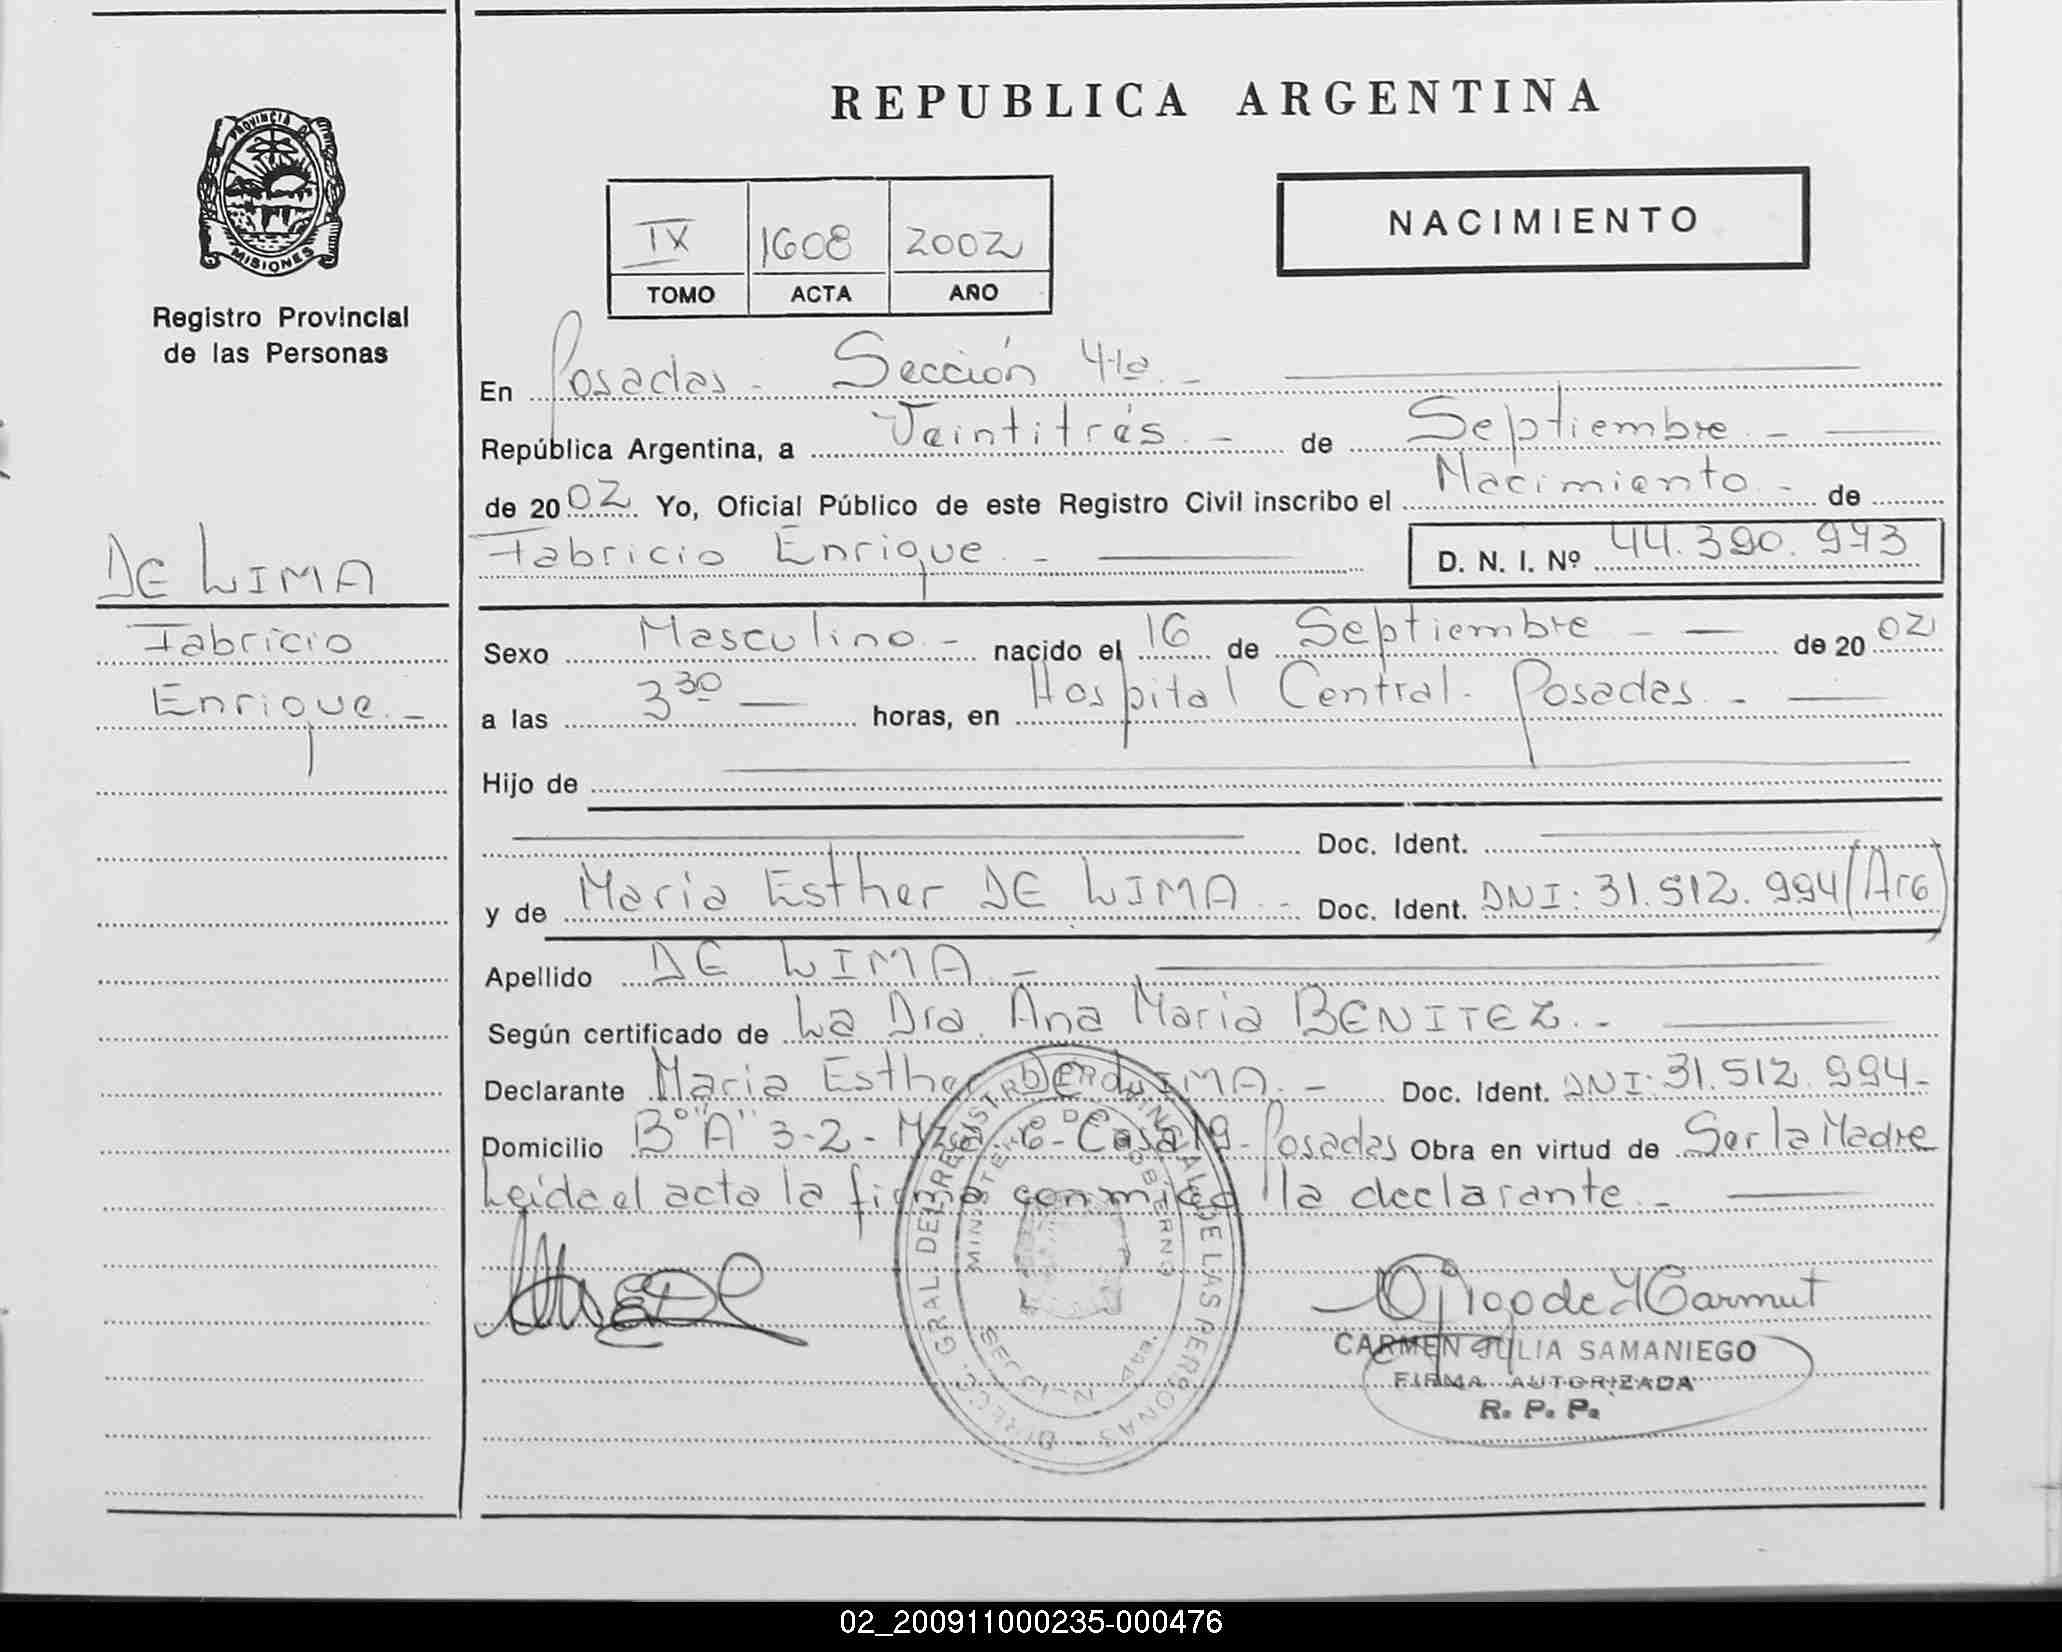 REPUBLICA ARGENTINA
PROVINCIA DE
MISIONES
Registro Provincial
de las Personas
IX 1608 2002
TOMO ACTA AÑO
NACIMIENTO
En Posadas - Sección 4ta. -
República Argentina, a Veintitrés. - de Septiembre. -
de 2002 Yo, Oficial Público de este Registro Civil inscribo el Nacimiento - de
Fabricio Enrique. - D. N. I. Nº 44.390.973
DE LIMA
Fabricio
Enrique. -
Sexo Masculino. - nacido el 16 de Septiembre - - de 2002
a las 3 30 horas, en Hospital Central. Posadas. -
Hijo de
Doc. Ident.
y de María Esther DE LIMA. - Doc. Ident. DNI: 31.512.994 (Arg)
Apellido DE LIMA. -
Según certificado de La Dra. Ana María BENITEZ. -
Declarante María Esther DE LIMA. - Doc. Ident. DNI: 31.512.994-
Domicilio Bº "A" 3-2 - Casa 19 - Posadas Obra en virtud de Ser la Madre
Leída el acta la firma conmigo la declarante. -
DIREC. GRAL. DEL REGISTRO PROVINCIAL DE LAS PERSONAS
MINISTERIO DE GOBIERNO
CARMEN JULIA SAMANIEGO
FIRMA AUTORIZADA
R. P. P.
02_200911000235-000476